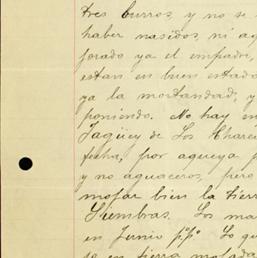 tres burros, y no se
haber nasidos, ni a
forado ya el empadre,
estan en buen estado
ya la mortandad, y
poniendo. No hay en
Jagüey de Los Charc
fecha, por aqueya p
y no aguaceros, pero
mojar bien la tierr
Siembras. Los ma
en Junio p.p.º Lo qu
se en tierra mojada